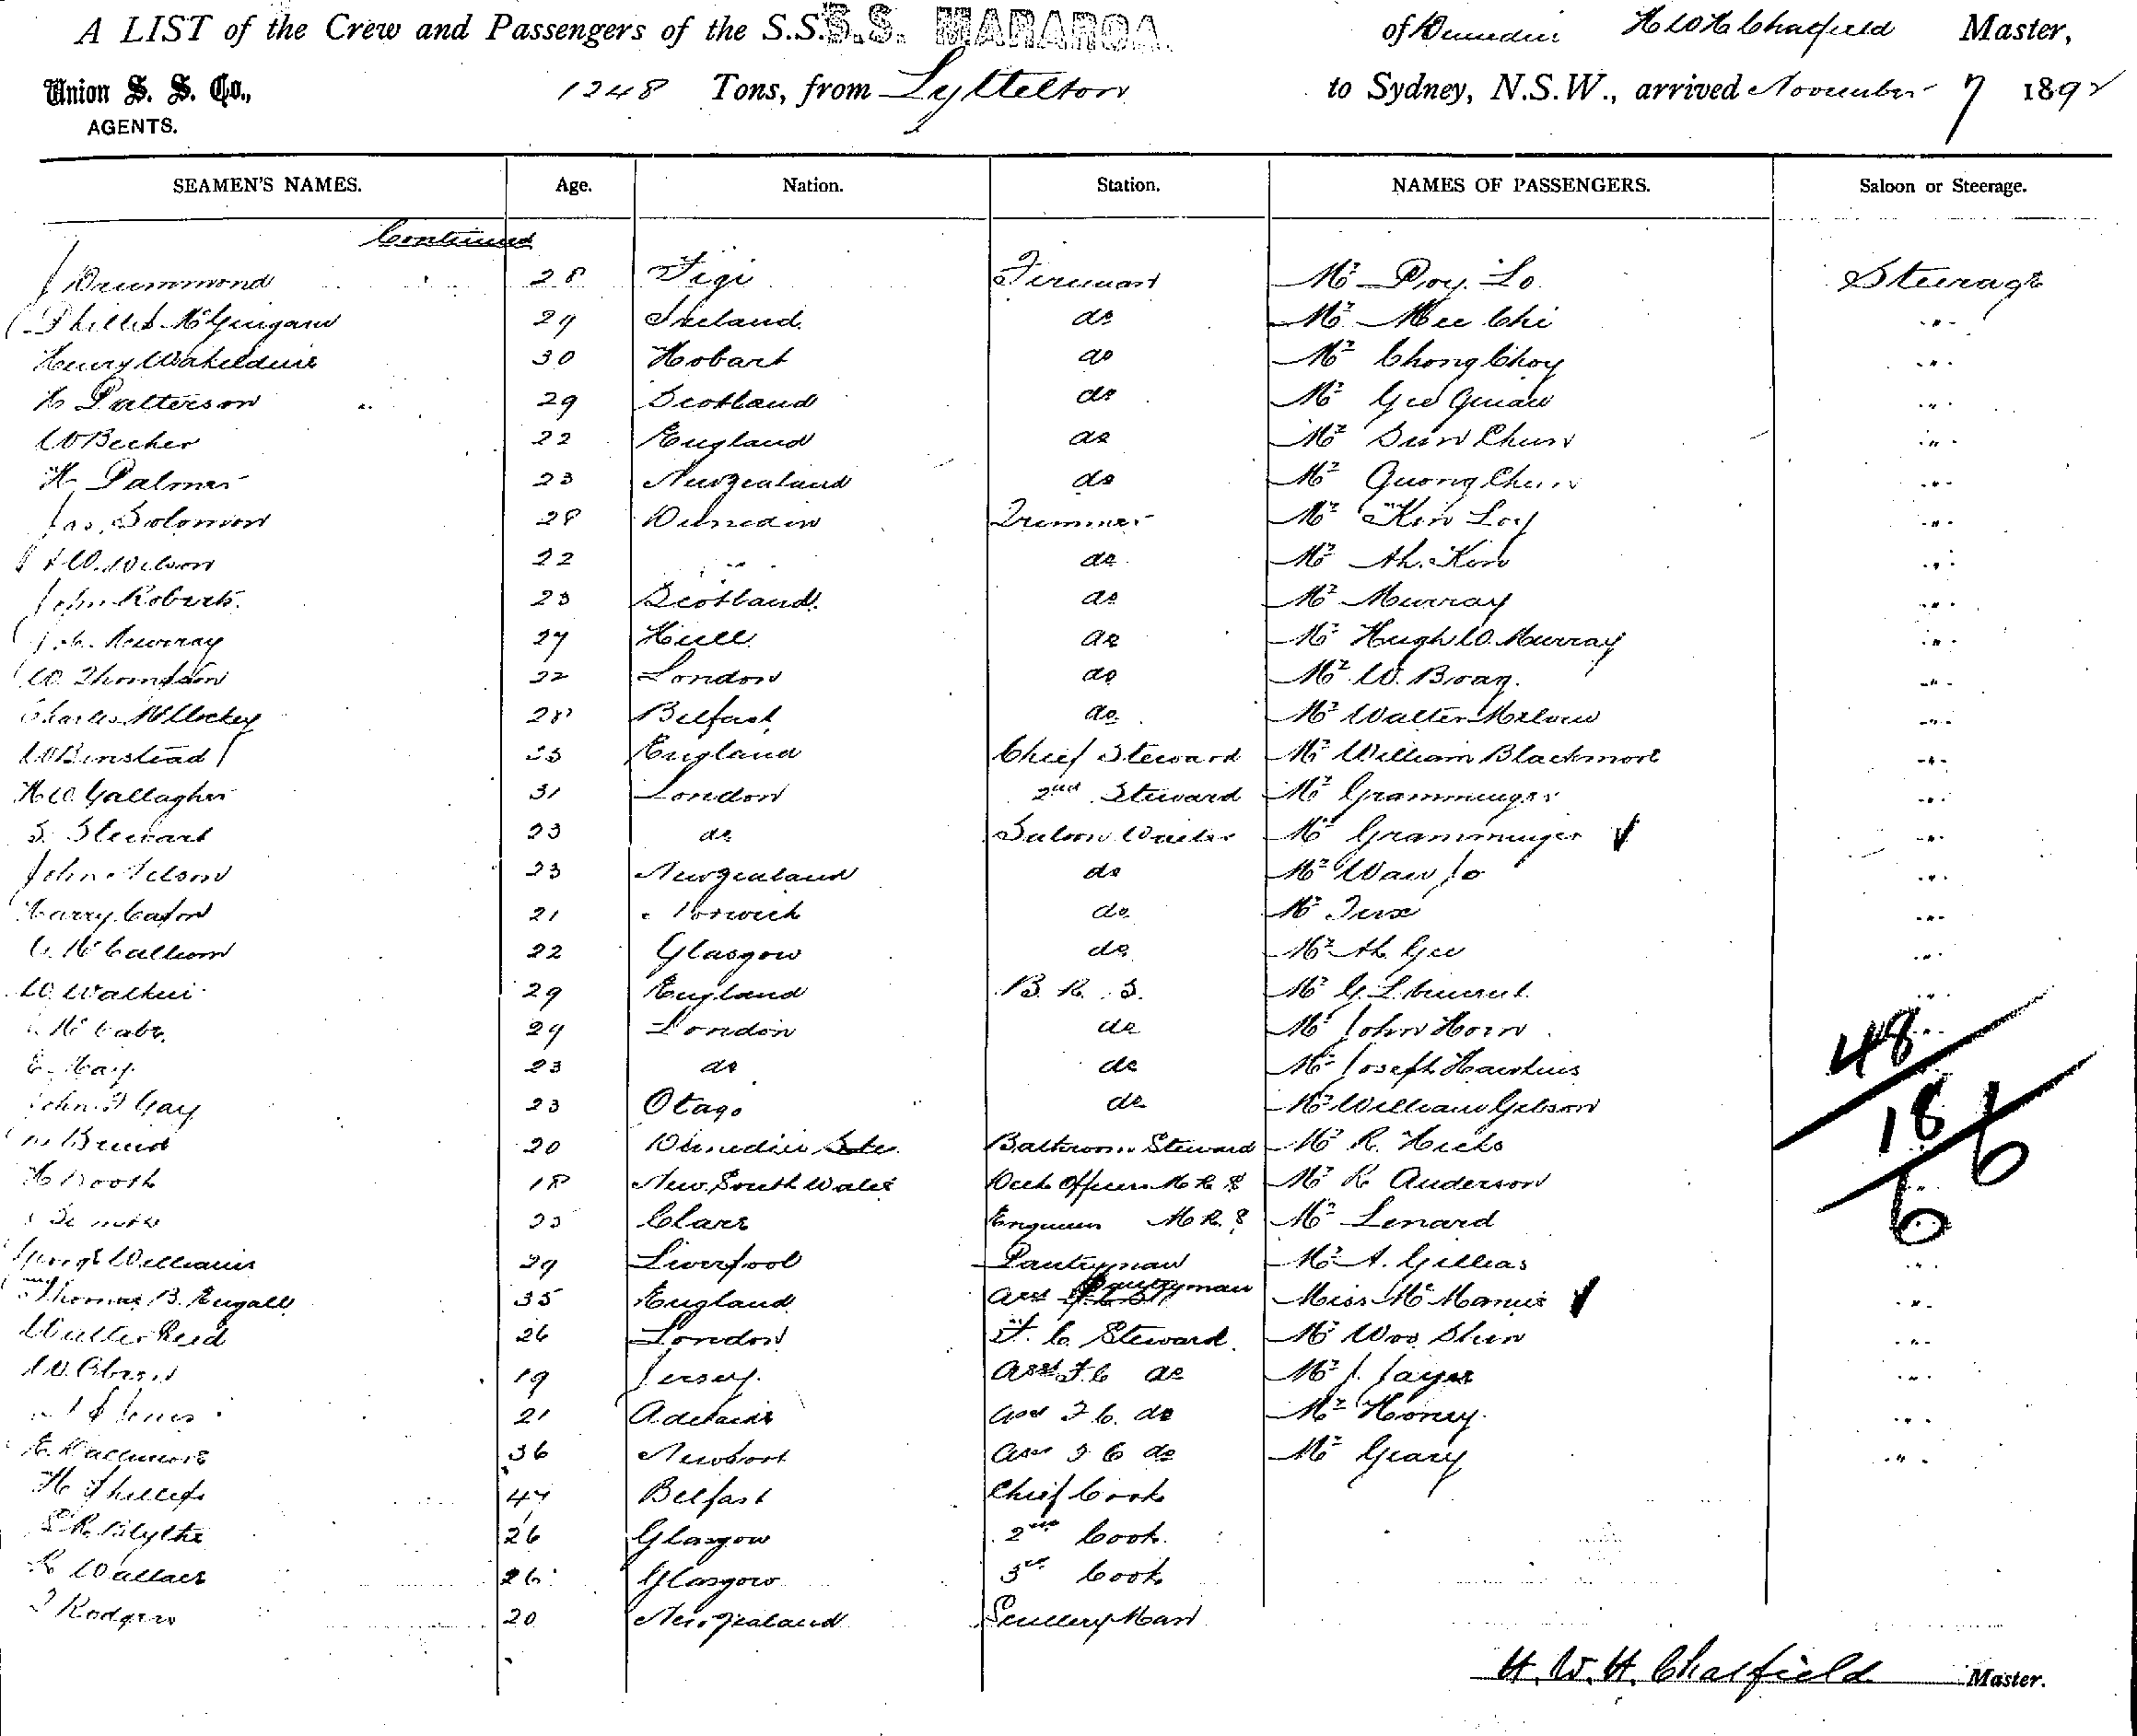 A LIST of the Crew and Passengers of the S.S. S.S. MARAROA. of Dunedin H W H Chatfield Master,
Union S. S. Co., 1248 Tons, from Lyttelton to Sydney, N.S.W., arrived November 7 1892
AGENTS.
SEAMEN'S NAMES. Age. Nation. Station. NAMES OF PASSENGERS. Saloon or Steerage.
Continued
J Drummond 28 Figi Fireman Mr Doy Lo Steerage
McGuigan 29 Ireland do Mr Mee Chi "
Henry 30 Hobart do Mr Chong Choy "
H Patterson 29 Scotland do Mr Gee "
W Becher 22 England do Mr Sun Chun "
H Palmer 23 New Zealand do Mr Quong "
Jas. Solomon 28 Dunedin Trimmer Mr Kin Loy "
W. Wilson 22 " do Mr Ah. Kin "
John Roberts. 23 Scotland. do Mr Murray "
Murray 27 Hull do Mr Hugh W. Murray "
W. Thompson 22 London do Mr W. Boag. "
Charles 28 Belfast do. Mr Walter "
W Binstead 33 England Chief Steward Mr William Blackmore "
H W. Gallagher 31 London 2nd Steward Mr "
S. Stewart 23 do Saloon Waiter "
John Nelson 23 New Zealand do Mr Wan Jo "
Harry 21 Norwich do Mr "
McCallum 22 Glasgow do Mr Ah Gee "
W. 29 England B. R. S. Mr G. L. "
McCabe. 29 London do Mr John Horn "
E. May. 23 do do Mr Joseph Hawkins
John Gay 23 Otago do Mr William Gibson
20 Dunedin Bathroom Steward Mr R. Hicks
H Booth 18 New South Wales Officers M R S Mr R Anderson
Clare M R S Mr Lenard
48
18 6
6
George Williams 29 Liverpool Pantryman Mr A. Gillias "
Thomas B. 35 England Asst Pantryman Miss McManus "
Walter Reid 26 London F. C. Steward. Mr Woo Shun "
W. 19 Jersey. Asst F. C do Mr J. "
21 Adelaide Asst F C. do Mr Honey. "
E. 36 Newport Asst F C do Mr Geary "
H Phillips 47 Belfast Chief Cook
Blythe 26 Glasgow 2nd Cook.
Wallace 26 Glasgow 3rd Cook
Rodgers 20 New Zealand Scullery Man
H. W. H. Chatfield Master.